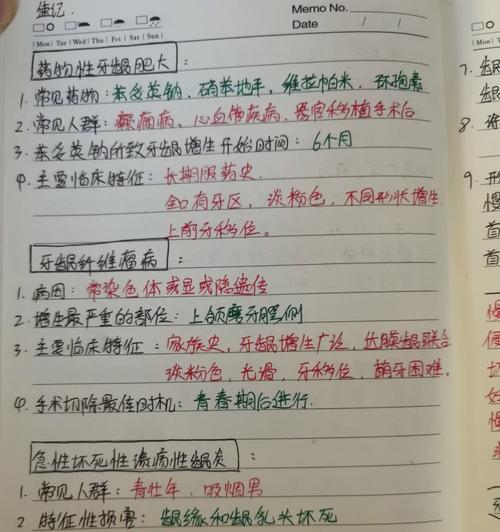 速记.
Memo No.
Date / /
Mon Tue Wed Thu Fri Sat Sun
药物性牙龈肥大:
1. 常见药物: 苯妥英钠, 硝苯地平, 维拉帕米, 环孢素
2. 常见人群: 癫痫病、心血管疾病, 器官移植手术后
3. 苯妥英钠所致牙龈增生开始时间: 6个月
4. 主要临床特征: 长期服药史.
全口有牙区, 淡粉色, 不同形状增生
上前牙移位。
牙龈纤维瘤病:
1. 病因: 常染色体或显或隐遗传
2. 增生最严重的部位: 上颌磨牙腭侧
3. 主要临床特征: 家族史, 牙龈增生广泛, 达膜龈联合
淡粉色, 光滑, 牙移位, 萌牙困难.
4. 手术切除最佳时机: 青春期后进行.
急性坏死性溃疡性龈炎:
1. 常见人群: 青壮年, 吸烟男
2. 特征性损害: 龈缘和龈乳头坏死
7.
龈
8.
9.
慢
首
首
慢